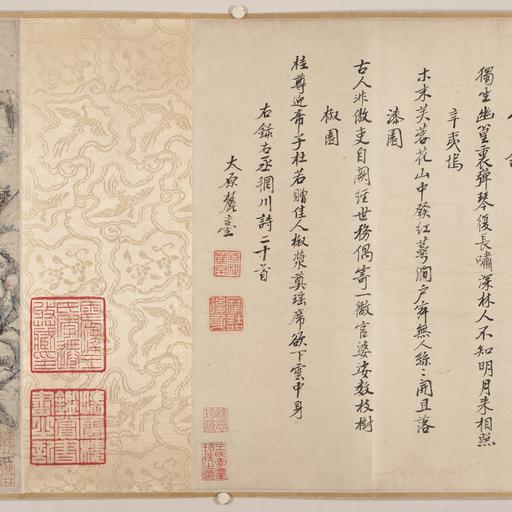 獨坐幽篁裏彈琴復長嘯深林人不知明月來相照
辛夷塢
木末芙蓉花山中發紅萼澗戶寂無人絲〻開且落
漆園
古人非傲吏自闕經世務偶寄一微官婆娑數枝樹
椒園
桂尊迎帝子杜若贈佳人椒漿奠瑤席欲下雲中君
右錄右丞輞川詩二十首
太原麓臺